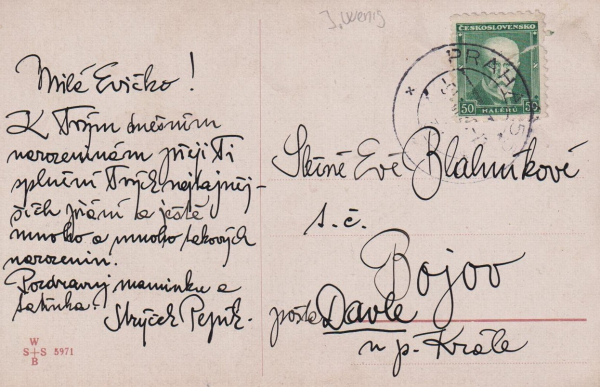 J. Wenig
ČESKOSLOVENSKO
50 50
HALÉŘŮ
PRAHA
Milé Evičko!
K Tvým dnešním
narozeninám přeji Ti
splnění Tvých nejtajněj-
ších přání a ještě
mnoho a mnoho takových
narozenin.
Pozdravuj maminku a
tatínka! Strýček Pepík.
Slečně Evě Blahníkové
t. č.
Bojov
pošta Davle
u p. Krále
W
S+S 5971
B